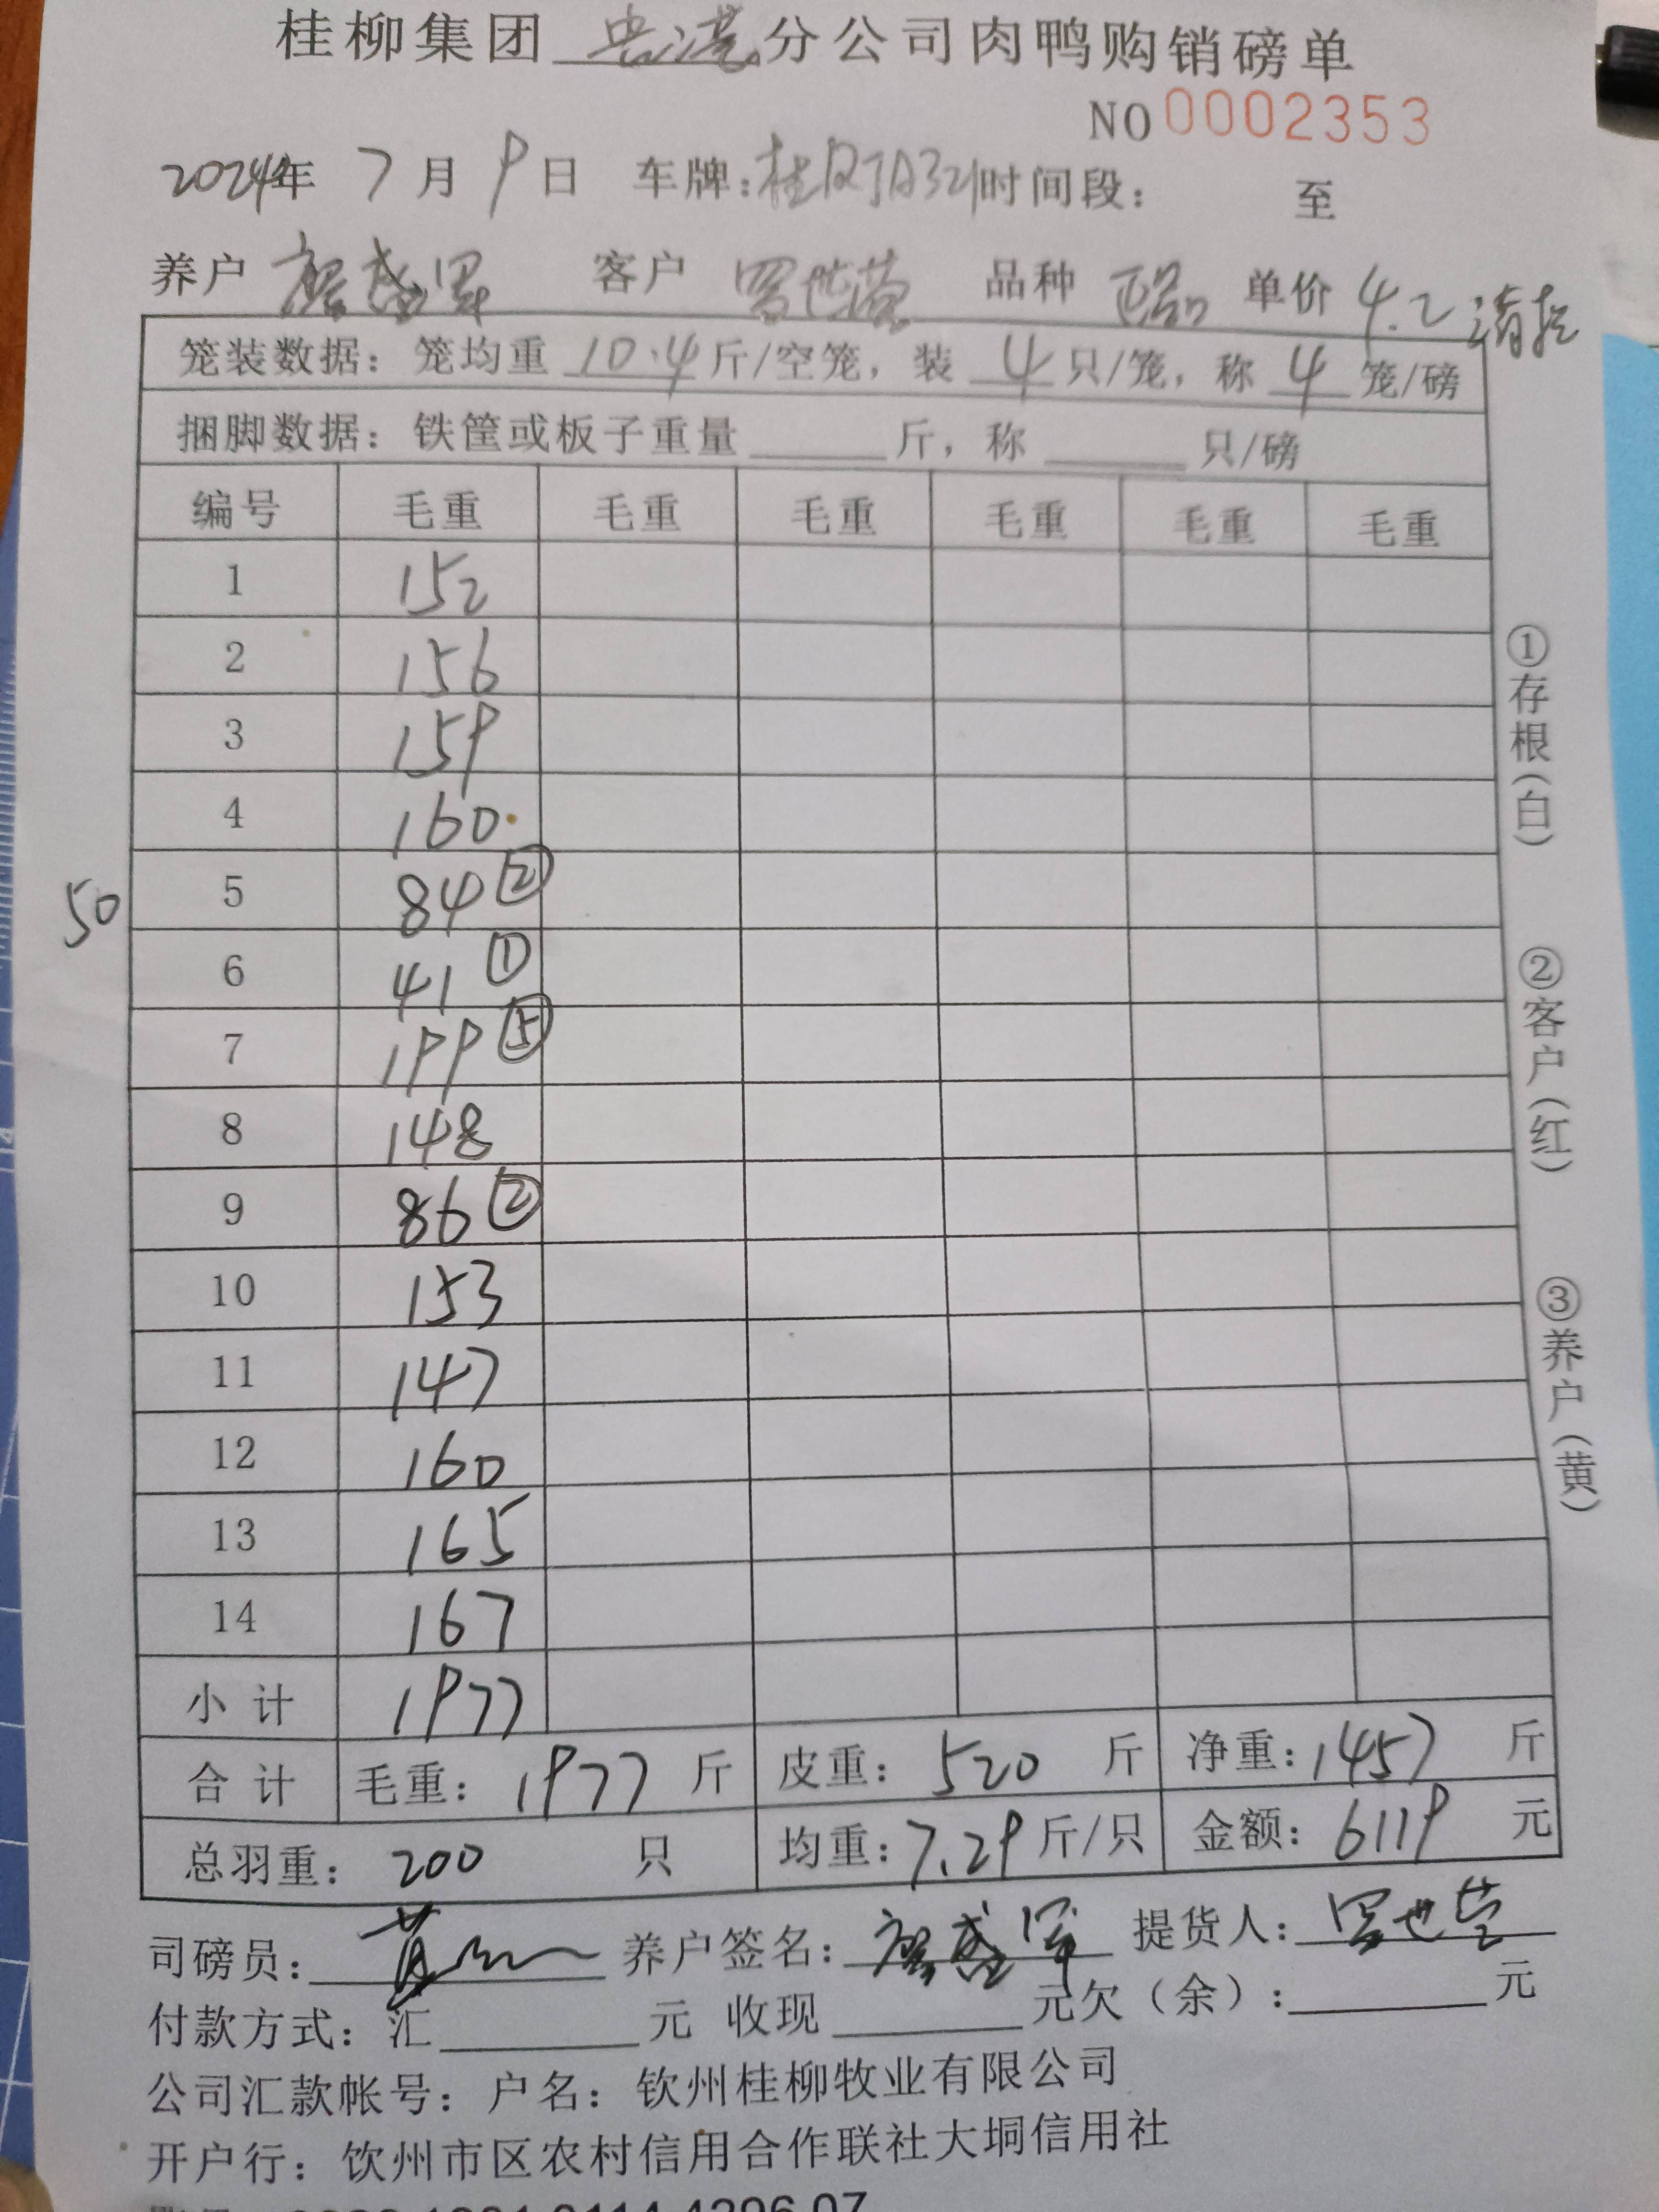 桂柳集团 分公司肉鸭购销磅单
NO 0002353
2024年 7月 9日 车牌: 时间段: 至
养户 廖盛军 客户 罗世营 品种 正品 单价 4.2 清
笼装数据: 笼均重 10.4 斤/空笼, 装 4 只/笼, 称 4 笼/磅
捆脚数据: 铁筐或板子重量 斤, 称 只/磅
编号 毛重 毛重 毛重 毛重 毛重 毛重
1 152
2 156
3 159
4 160
50 5 84 ②
6 41 ①
7 199 ⑤
8 148
9 86 ②
10 153
11 147
12 160
13 165
14 167
小 计 1977
合 计 毛重: 1977 斤 皮重: 520 斤 净重: 1457 斤
总羽重: 200 只 均重: 7.29 斤/只 金额: 6119 元
①存根(白)
②客户(红)
③养户(黄)
司磅员: 养户签名: 廖盛军 提货人: 罗世营
付款方式: 汇 元 收现 元欠(余): 元
公司汇款帐号: 户名: 钦州桂柳牧业有限公司
开户行: 钦州市区农村信用合作联社大垌信用社